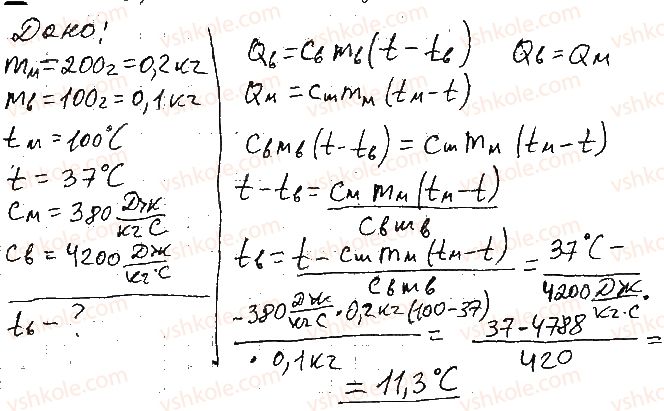 Дано!
mм=200г=0,2кг
mв=100г=0,1кг
tм=100°C
t=37°C
cм=380 Дж/кг·C
cв=4200 Дж/кг·C
tв-?
Qв=cвmв(t-tв) Qв=Qм
Qм=cмmм(tм-t)
cвmв(t-tв)=cмmм(tм-t)
t-tв=cмmм(tм-t)/cвmв
tв=t-cмmм(tм-t)/cвmв=37°C-/4200 Дж/кг·C·
-380 Дж/кг·C·0,2кг(100-37)/·0,1кг=37-4788/420=
=11,3°C
vshkole.com